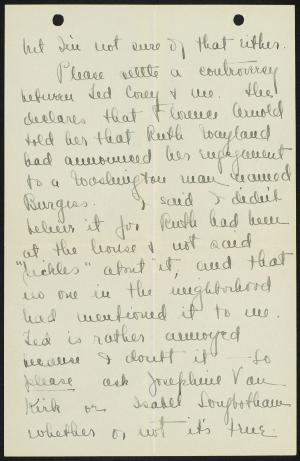 but I'm not sure of that either.
Please settle a controversy
between Ted Corey & me. She
declares that Florence Arnold
told her that Ruth Wayland
had announced her engagement
to a Washington man named
Burgess. I said I didn't
believe it for Ruth had been
at the house & not said
"pickles" about it, and that
no one in the neighborhood
had mentioned it to me.
Ted is rather annoyed
because I doubt it — so
please ask Josephine Van
Kirk or Isabel Longbotham
whether or not it's true.